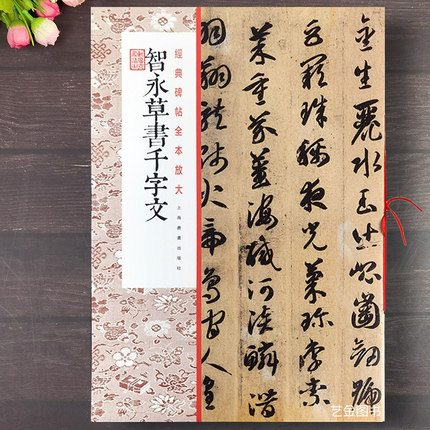 金生麗水玉出崑崗劍號
巨闕珠稱夜光菓珍李柰
菜重芥薑海醎河淡鱗潛
羽翔龍師火帝鳥官人皇
經典碑帖全本放大
上海書畫出版社
智永草書千字文
艺金图书